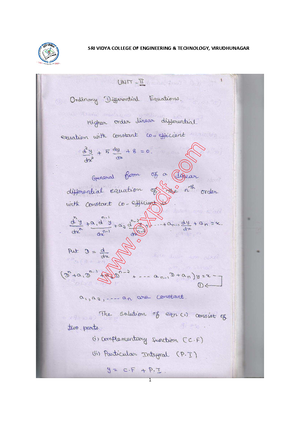 SRI VIDYA COLLEGE OF ENGINEERING & TECHNOLOGY, VIRUDHUNAGAR
UNIT - II
Ordinary Differential Equations.
Higher order linear differential
equation with constant co-efficient
d²y/dx² + 5 dy/dx + 6 = 0.
General form of a linear
differential equation of the nth order
with constant co-efficient
dⁿy/dxⁿ + a₁ dⁿ⁻¹y/dxⁿ⁻¹ + a₂ ... + aₙ₋₁ dy/dx + aₙ = x
Put D = d/dx
(Dⁿ + a₁ Dⁿ⁻¹ + a₂ Dⁿ⁻² + ---- aₙ₋₁ D + aₙ) y = x -
①
a₁, a₂, ---- aₙ are constant
The solution of eqn (1) consist of
two parts
(i) Complementary function (C.F)
(ii) Particular Integral (P.I)
y = C.F + P.I
1
www.oxpdf.com